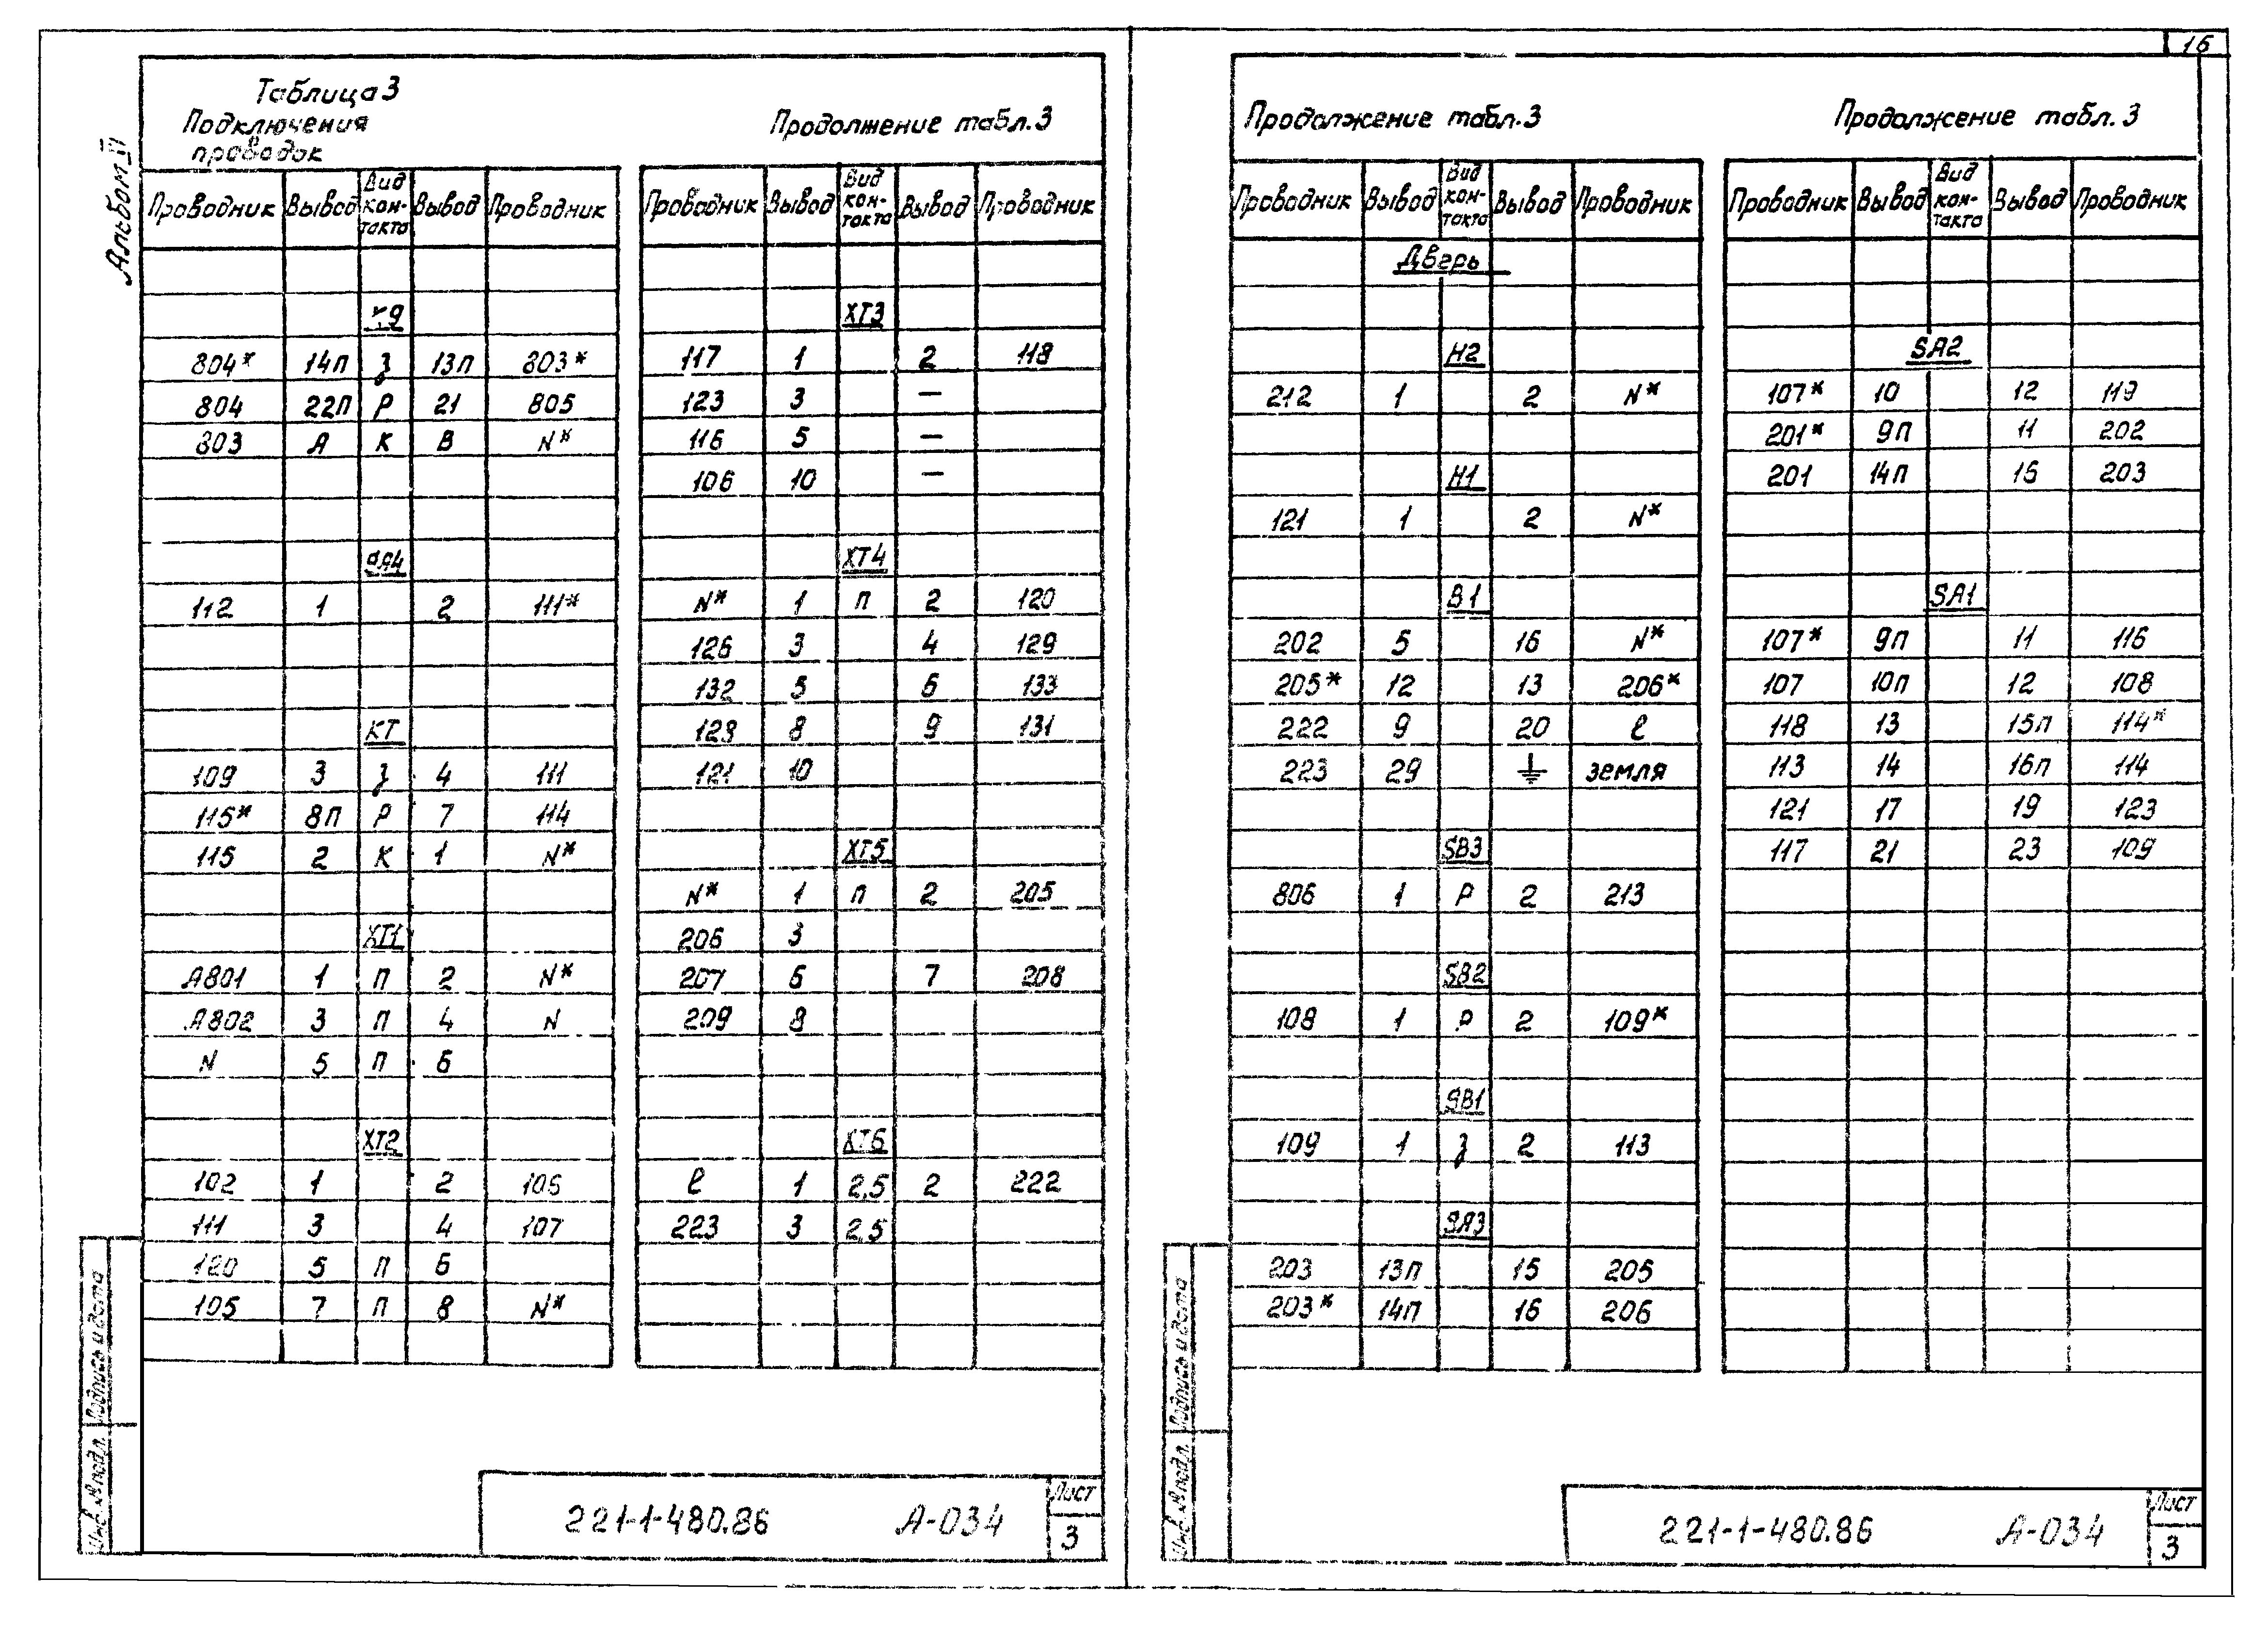 16
Альбом VI
Таблица 3
Подключения
проводок
Проводник Вывод Вид кон- такта Вывод Проводник
804* 14П З 13П 803*
804 22П Р 21 805
803 А К В N*
112 1 2 111*
КТ
109 3 З 4 111
115* 8П Р 7 114
115 2 К 1 N*
ХТ1
А801 1 П 2 N*
А802 3 П 4 N
N 5 П 6
ХТ2
102 1 2 106
111 3 4 107
120 5 П 6
105 7 П 8 N*
Продолжение табл. 3
Проводник Вывод Вид кон- такта Вывод Проводник
ХТ3
117 1 2 118
123 3 —
116 5 —
106 10 —
ХТ4
N* 1 П 2 120
126 3 4 129
132 5 6 133
123 8 9 131
121 10
ХТ5
N* 1 П 2 205
206 3
207 6 7 208
209 8
ХТ6
ℓ 1 2,5 2 222
223 3 2,5
Инв. № подл. Подпись и дата
221-1-480.86 А-034
Лист
3
Продолжение табл. 3
Проводник Вывод Вид кон- такта Вывод Проводник
Дверь
Н2
212 1 2 N*
Н1
121 1 2 N*
В1
202 5 16 N*
205* 12 13 206*
222 9 20 ℓ
223 29 ⏚ земля
SB3
806 1 Р 2 213
SB2
108 1 Р 2 109*
SB1
109 1 З 2 113
SA3
203 13П 15 205
203* 14П 16 206
Продолжение табл. 3
Проводник Вывод Вид кон- такта Вывод Проводник
SA2
107* 10 12 119
201* 9П 11 202
201 14П 15 203
SA1
107* 9П 11 116
107 10П 12 108
118 13 15П 114*
113 14 16П 114
121 17 19 123
117 21 23 109
Инв. № подл. Подпись и дата
221-1-480.86 А-034
Лист
3